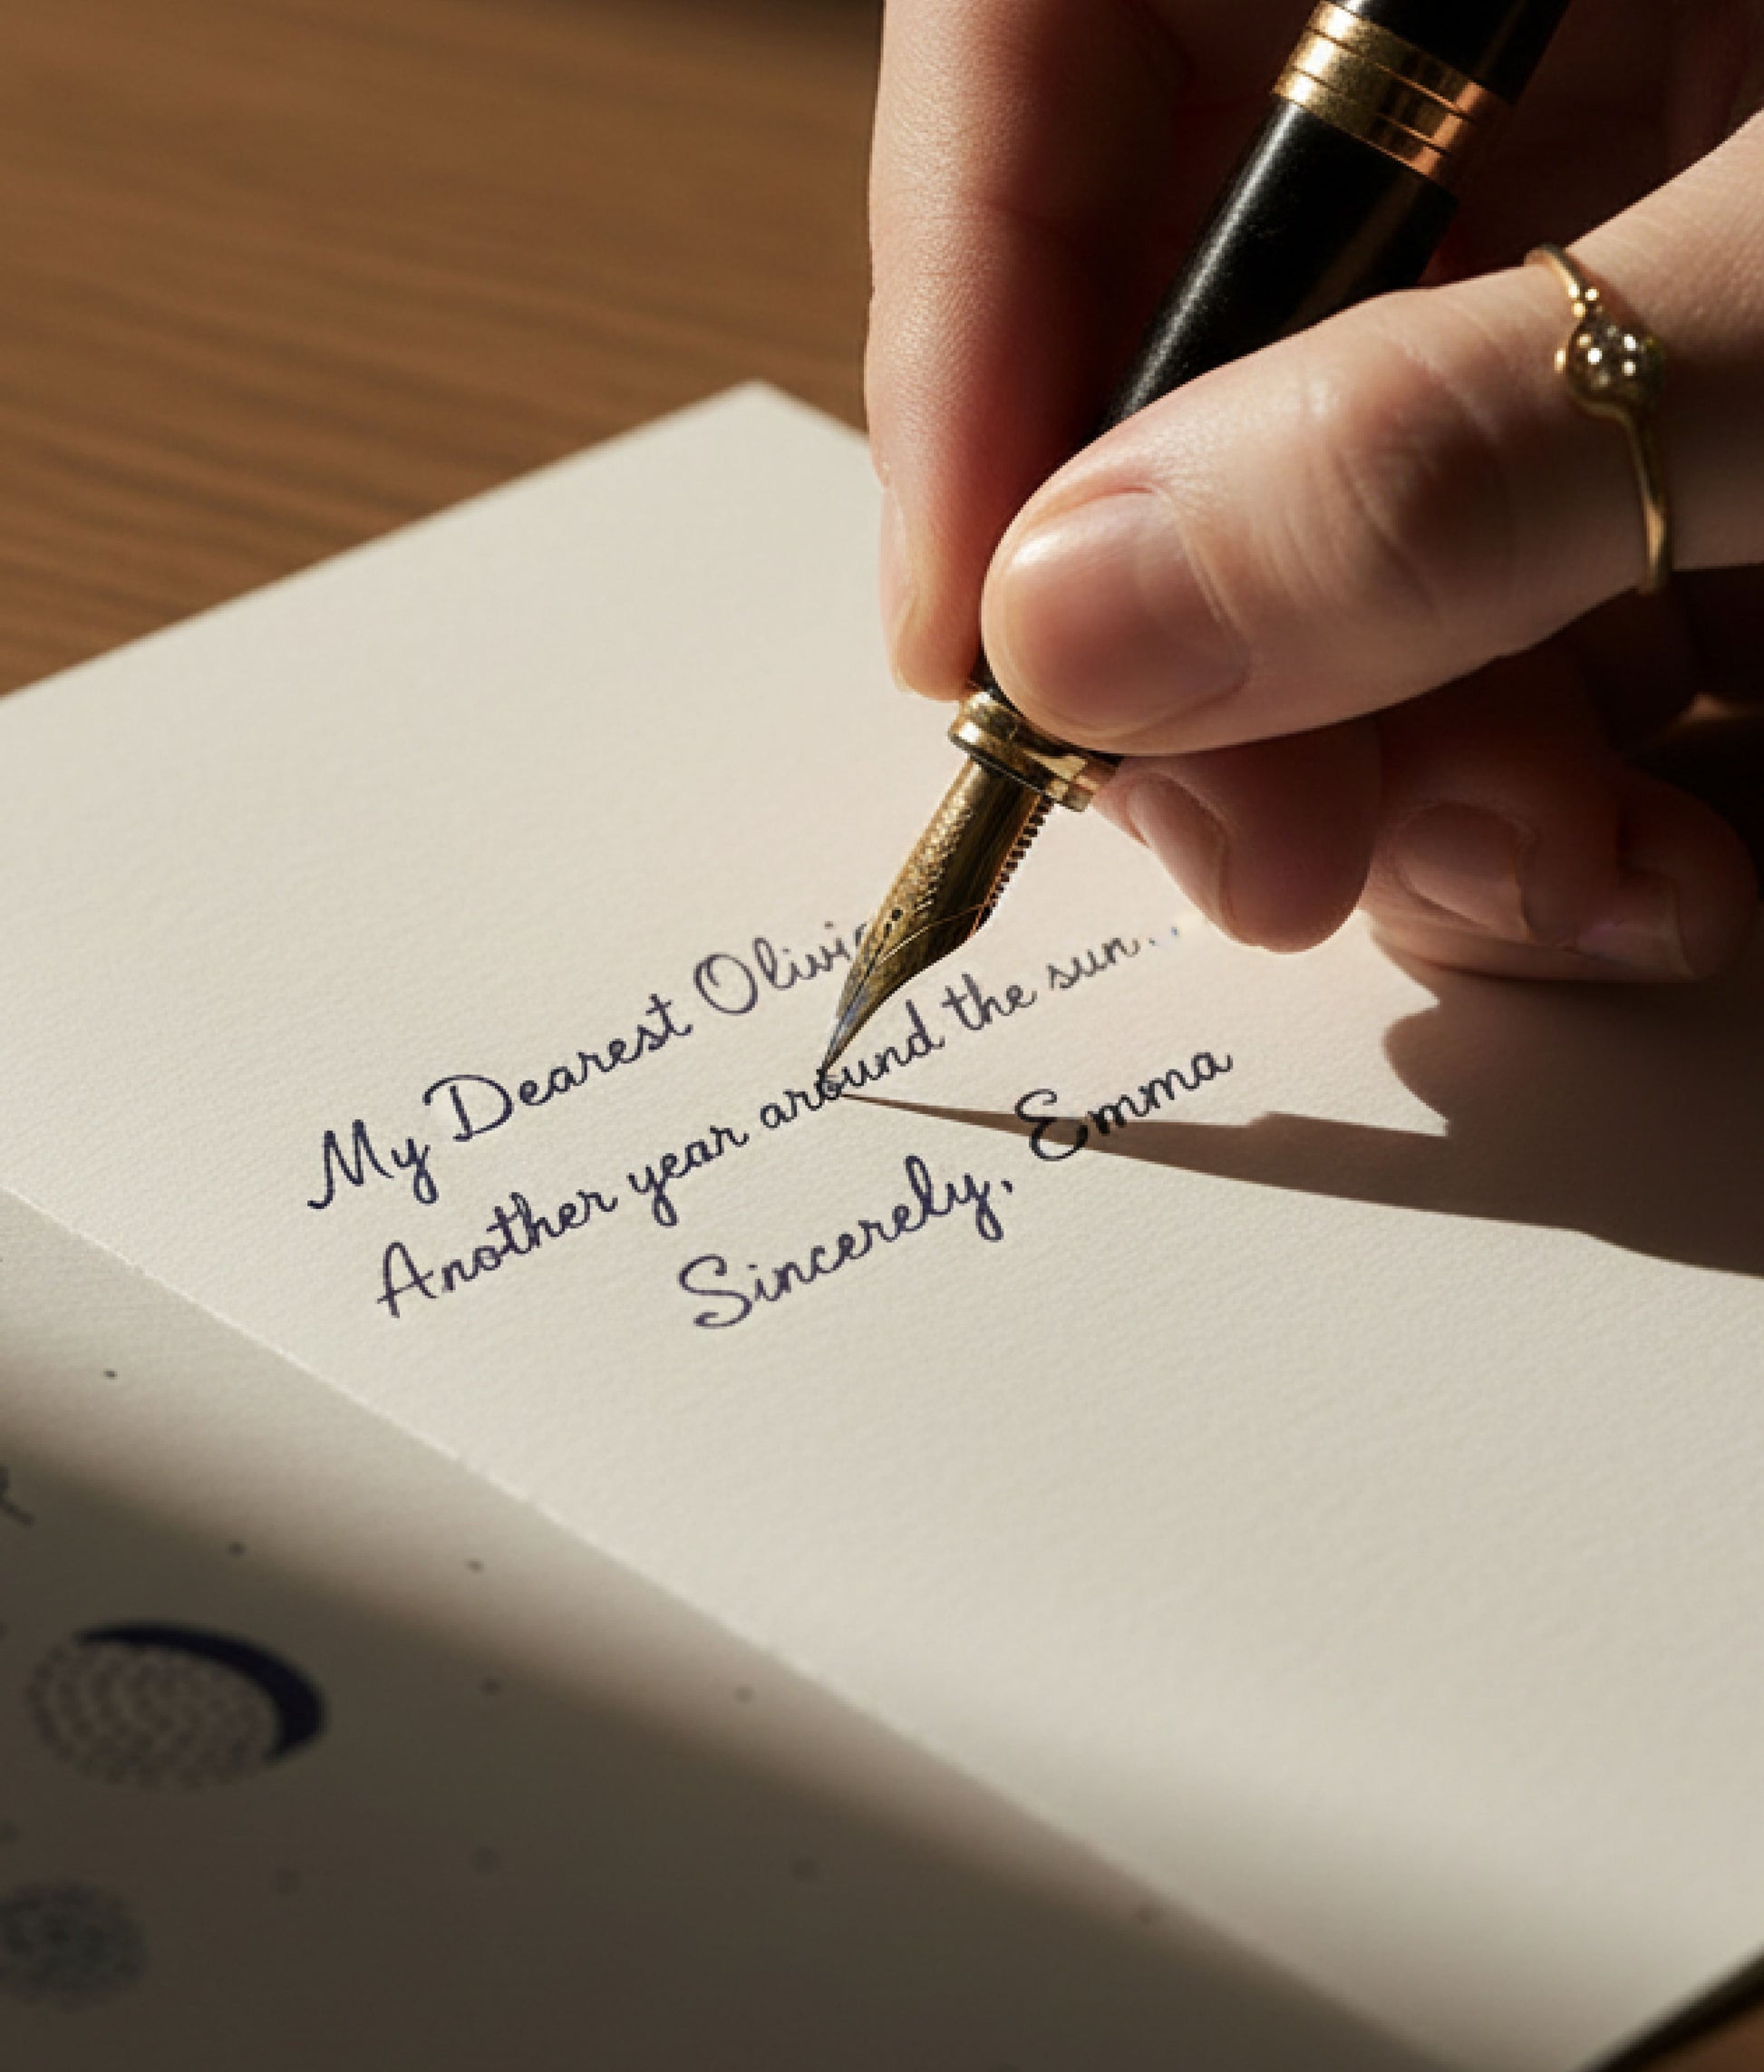 My Dearest Olivia
Another year around the sun...
Sincerely, Emma